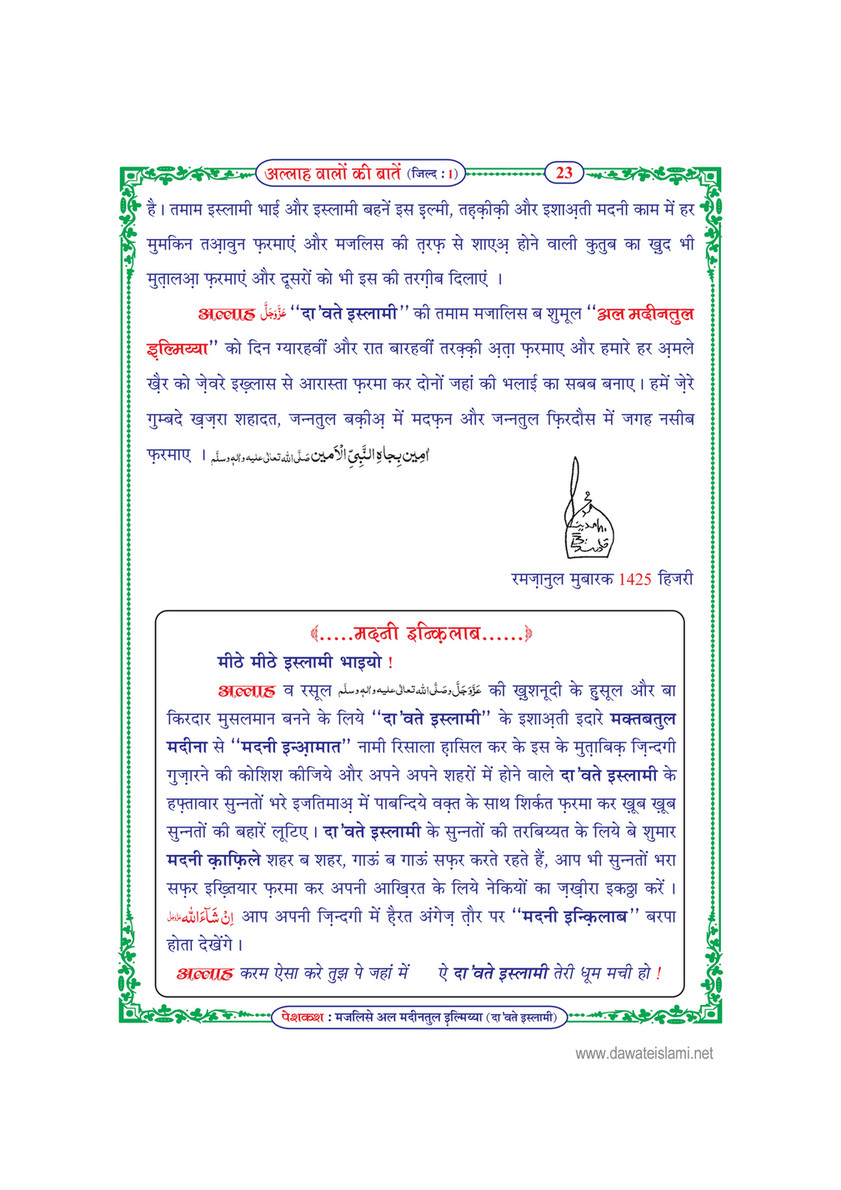 अल्लाह वालों की बातें (जिल्द : 1)
23
है। तमाम इस्लामी भाई और इस्लामी बहनें इस इ़ल्मी, तह़क़ीक़ी और इशाअ़ती मदनी काम में हर
मुमकिन तआ़वुन फ़रमाएं और मजलिस की त़रफ़ से शाएअ़ होने वाली कुतुब का ख़ुद भी
मुत़ालआ़ फ़रमाएं और दूसरों को भी इस की तरग़ीब दिलाएं ।
अल्लाह عَزَّوَجَلَّ ‘‘दा'वते इस्लामी’’ की तमाम मजालिस ब शुमूल ‘‘अल मदीनतुल
इ़ल्मिय्या’’ को दिन ग्यारहवीं और रात बारहवीं तरक़्क़ी अ़त़ा फ़रमाए और हमारे हर अ़मले
ख़ैर को ज़ेवरे इख़्लास से आरास्ता फ़रमा कर दोनों जहां की भलाई का सबब बनाए। हमें ज़ेरे
गुम्बदे ख़ज़रा शहादत, जन्नतुल बक़ीअ़ में मदफ़न और जन्नतुल फ़िरदौस में जगह नसीब
फ़रमाए । اٰمِين بِجَاهِ النَّبِيِّ الْاَمين صَلَّى اللّٰه تعالٰى عليه واٰلهٖ وسلَّم
रमज़ानुल मुबारक 1425 हिजरी
﴾.....मदनी इन्क़िलाब......﴿
मीठे मीठे इस्लामी भाइयो !
अल्लाह व रसूल عَزَّوَجَلَّ وصَلَّى اللّٰه تعالٰى عليه واٰلهٖ وسلَّم की ख़ुशनूदी के ह़ुसूल और बा
किरदार मुसलमान बनने के लिये ‘‘दा'वते इस्लामी’’ के इशाअ़ती इदारे मक्तबतुल
मदीना से ‘‘मदनी इन्आ़मात’’ नामी रिसाला ह़ासिल कर के इस के मुत़ाबिक़ ज़िन्दगी
गुज़ारने की कोशिश कीजिये और अपने अपने शहरों में होने वाले दा'वते इस्लामी के
हफ़्तावार सुन्नतों भरे इजतिमाअ़ में पाबन्दिये वक़्त के साथ शिर्कत फ़रमा कर ख़ूब ख़ूब
सुन्नतों की बहारें लूटिए। दा'वते इस्लामी के सुन्नतों की तरबिय्यत के लिये बे शुमार
मदनी क़ाफ़िले शहर ब शहर, गाऊं ब गाऊं सफ़र करते रहते हैं, आप भी सुन्नतों भरा
सफ़र इख़्तियार फ़रमा कर अपनी आख़िरत के लिये नेकियों का ज़ख़ीरा इकठ्ठा करें ।
اِنْ شَآءَاللّٰه عَزَّوَجَلَّ आप अपनी ज़िन्दगी में ह़ैरत अंगेज़ त़ौर पर ‘‘मदनी इन्क़िलाब’’ बरपा
होता देखेंगे ।
अल्लाह करम ऐसा करे तुझ पे जहां में ऐ दा'वते इस्लामी तेरी धूम मची हो !
पेशकश : मजलिसे अल मदीनतुल इ़ल्मिय्या (दा'वते इस्लामी)
www.dawateislami.net